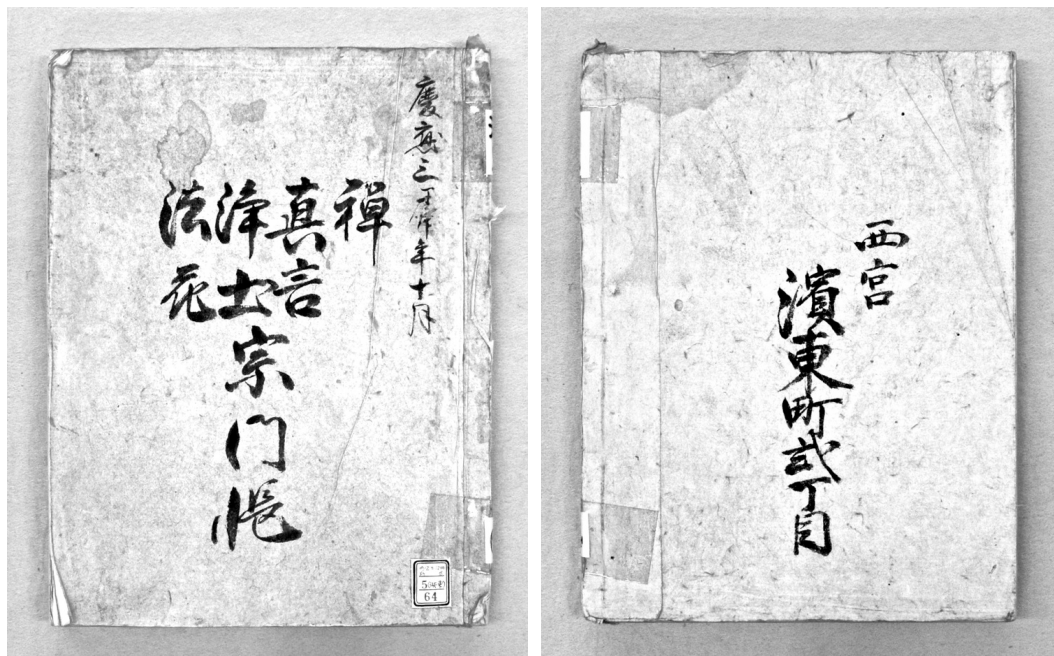 慶應三丁卯年十月
禅
真言
浄土
法花
宗門帳
64
西宮
濱東町弐丁目